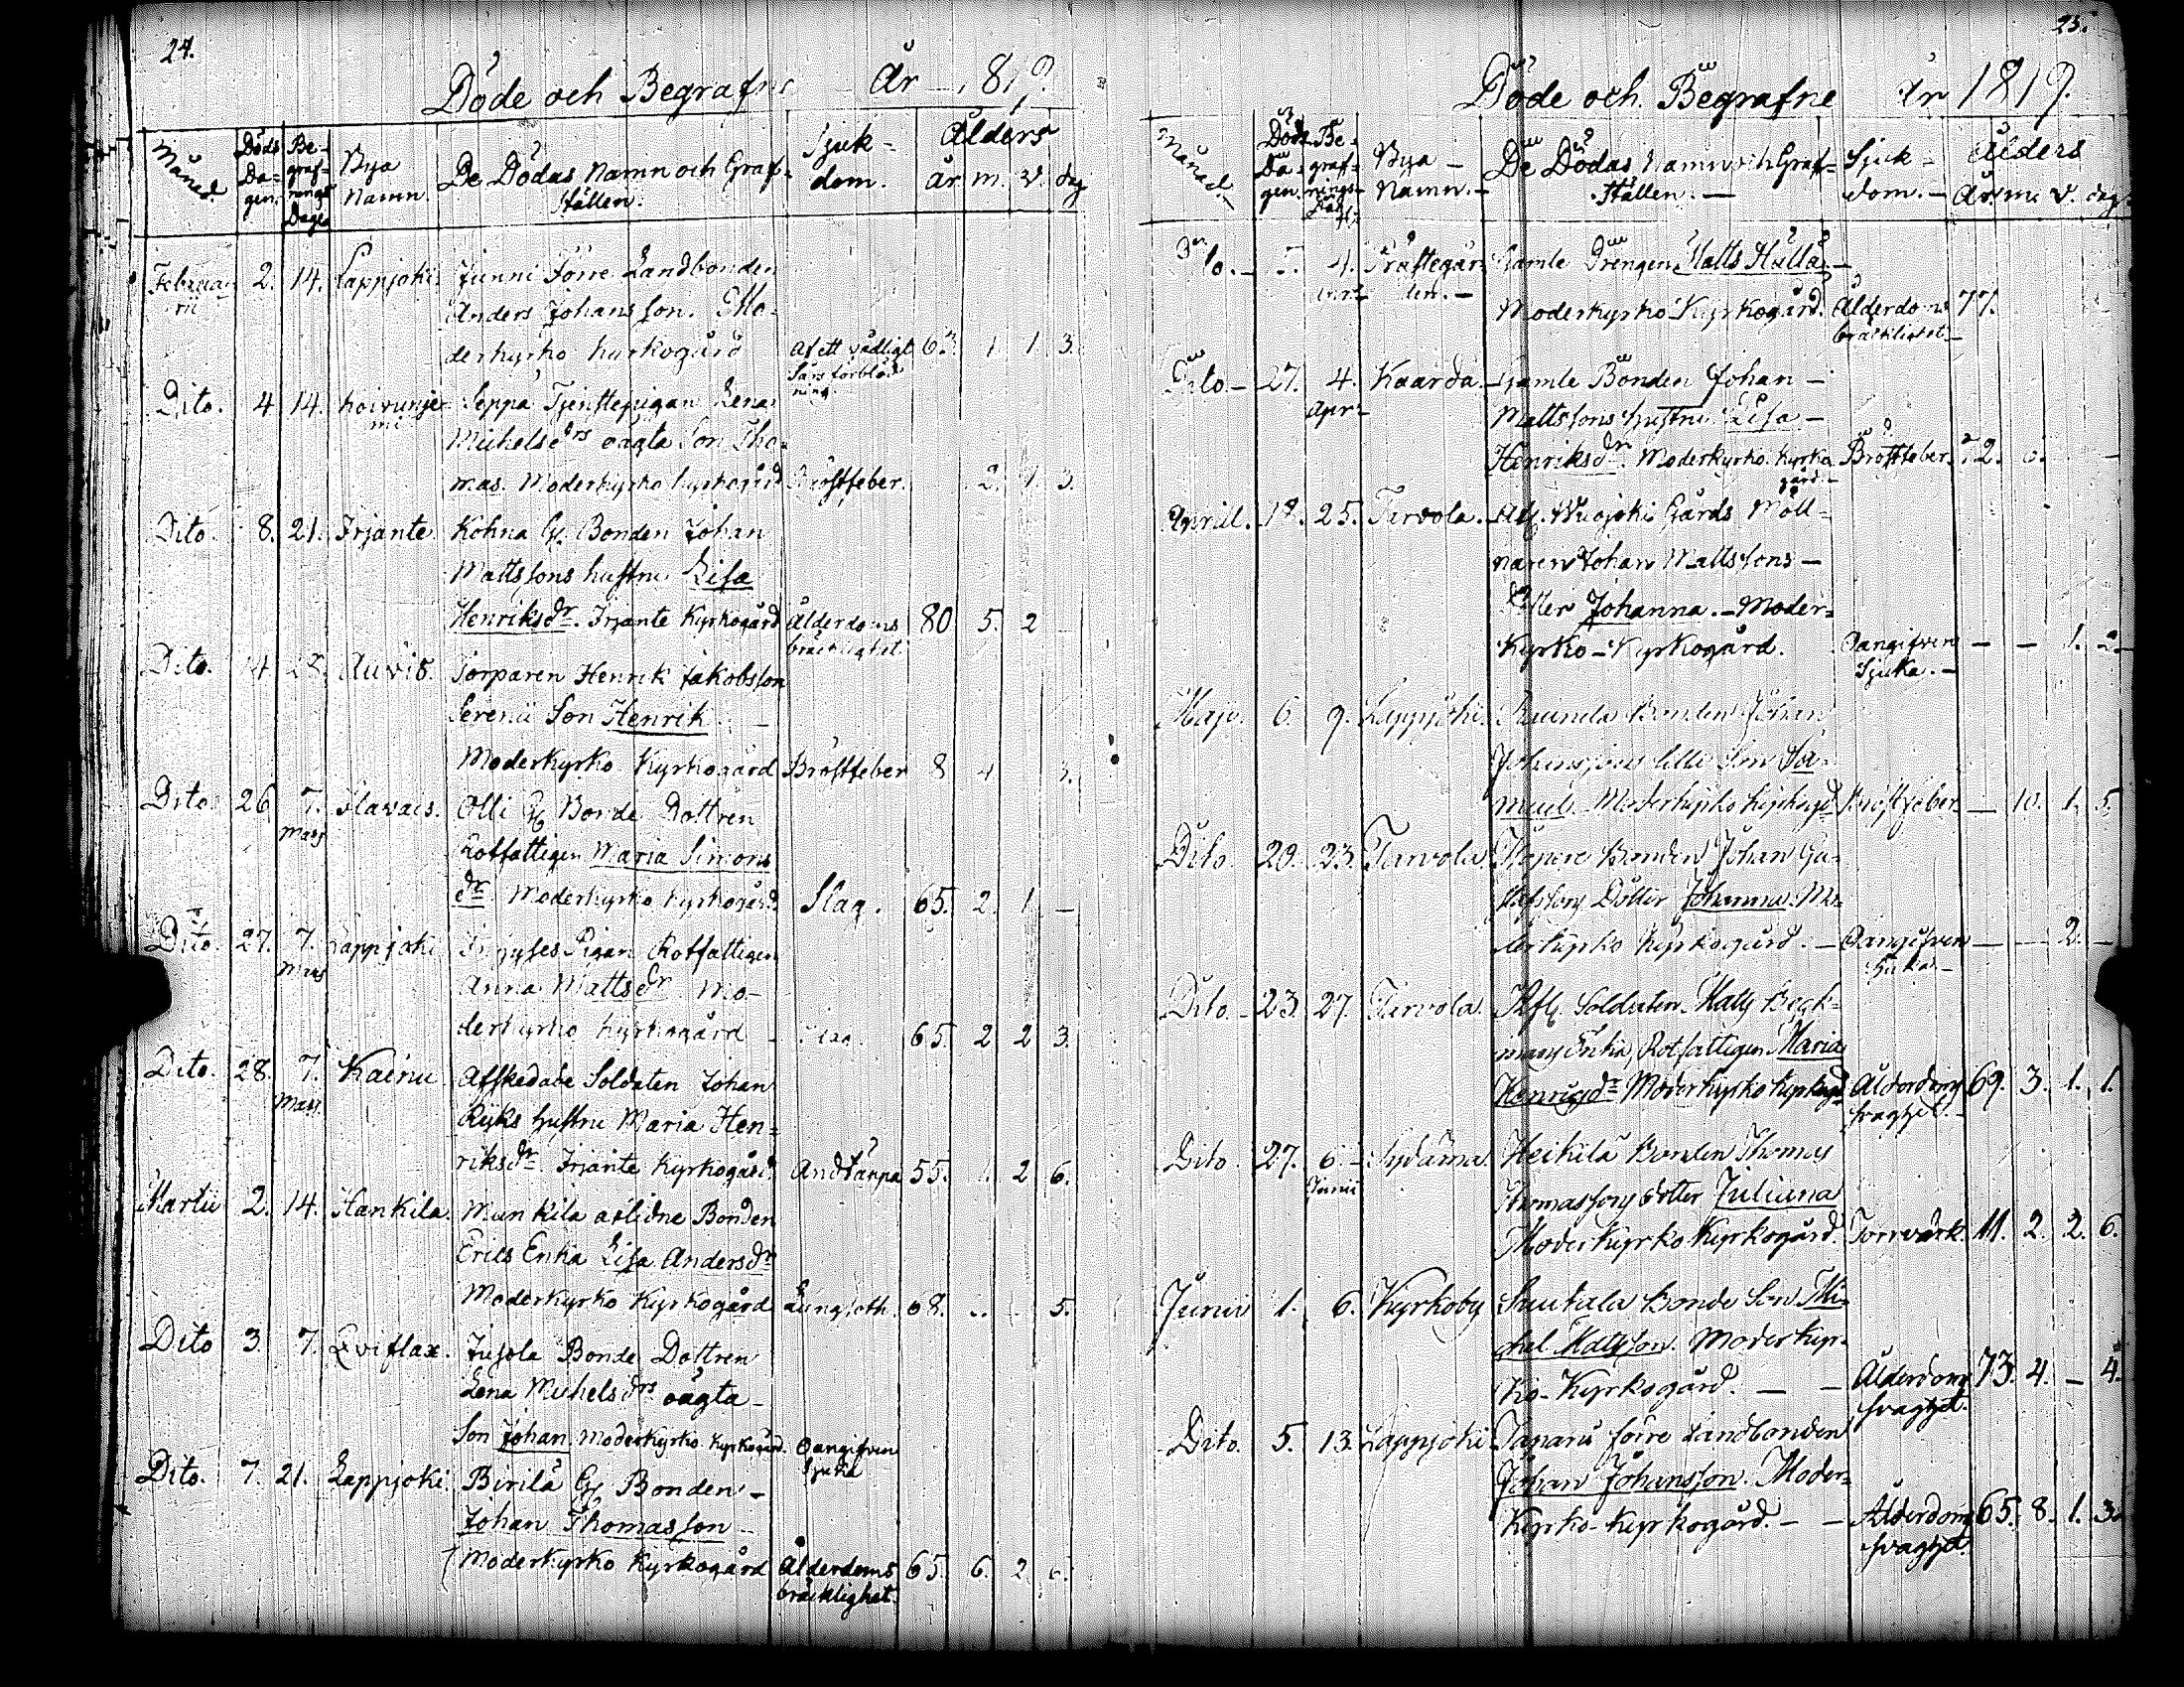 24.
Döde och Begrafne År 1819.
Månad. Döds Dagen. Begrafnings Dagen Bya Namn. De Dödas Namn och Graf- Ställen. Sjukdom. Ålders
år m. v. dag
Februarii 2. 14. Lappjoki. Junni Förre Landbonden
Anders Johansson. Mo-
derkyrko kyrkogård Af ett vådligt 63. 1. 1. 3.
Sårs förblödning.
Dito. 4 14. Koivunjemi Seppä Tjenstepigan Lena
Michelsdrs oägta Son Tho-
mas. Moderkyrko kyrkogård Bröstfeber. 2. 1. 3.
Dito. 8. 21. Irjante. Kohna Gl. Bonden Johan
Mattssons hustru Lisa
Henriksdr. Irjante Kyrkogård Ålderdoms 80 5. 2
bräcklighet
Dito. 14 28. Auvis. Torparen Henrik Jakobsson
Serenii Son Henrik.
Moderkyrko Kyrkogård Bröstfeber 8 4 3.
Dito. 26 7. Slavais. Olli Bonde Dottren
Mars
Rotfattigen Maria Simons
dr. Moderkyrko kyrkogård. Slag. 65. 2. 1. —
Dito. 27. 7. Lappjoki Pigan Rotfattigen
Mars
Anna Mattsdr. Mo-
derkyrko kyrkogård 65. 2 2 3.
Dito. 28. 7. Kainu Afskedade Soldaten Johan
Mars.
Ryks hustru Maria Hen-
riksdr. Irjante Kyrkogård. Andtäppa 55. 1. 2 6.
Martii 2. 14. Hankila. Munkila aflidne Bonden
Erics Enka Lisa Andersdr
Moderkyrko Kyrkogård Lungsoth. 68. 5.
Dito 3. 7. Qviflax. Jusola Bonde Dottren
Lena Michelsdrs oägta
Son Johan Moderkyrko kyrkogård. Oangifven
Sjuka
Dito. 7. 21. Lappjoki. Birilä Gl. Bonden —
Johan Thomasson —
Moderkyrko Kyrkogård Ålderdoms 65. 6. 2 6.
bräcklighet.
25.
Döde och Begrafne År 1819.
Månad. Döds Dagen. Begrafnings Dag Bya Namn. De Dödas Namn och Graf- Ställen. — Sjukdom. — Ålders
År. m. v. dag.
Dito. — 4. Prästegår- Gamle Drengen Matts Hälla —
den. —
Moderkyrko Kyrkogård. Ålderdoms 77.
bräcklighet —
Dito — 27. 4. Kaarda. Gamle Bonden Johan —
Apr.
Mattssons hustru Lisa —
Henriksdr. Moderkyrko. Kyrko Bröstfeber. 72. 6. —
gård. —
April. 18. 25. Tarvola. Wuojoki Gårds Möll-
naren Johan Mattssons —
Dotter Johanna. — Moder-
Kyrko — Kyrkogård. Oangifven — — 1. 2.
Sjuka. —
Maji. 6. 9. Lappjoki. Bonden Johan
Johanssons lille Son Sa-
muel. Moderkyrko kyrkogd Bröstfeber — 10. 1. 5.
Dito. 20. 23. Tarvola Bonden Johan Gu-
stafssons Dotter Johanna. Mo-
derkyrko Kyrkogård. — Oangifven — — 2. —
Sjuka —
Dito. — 23. 27. Tarvola. Afl. Soldaten Matts Beck-
mans Enka, Rotfattigen Maria
Henriksdr Moderkyrko kyrkogd Ålderdoms 69. 3. 1. 1.
svaghet. —
Dito. 27. 6. Sydänmaa. Heikilä Bonden Thomas
Junii
Thomassons dotter Juliana
Moderkyrko Kyrkogård. Torrvärk. 11. 2. 2. 6.
Junii 1. 6. Kyrkoby Bonde Son Mi-
chel Mattsson. Moderkyr-
ko-Kyrkogård. — — Ålderdoms 73. 4. — 4.
svaghet.
Dito. 5. 13. Lappjoki Förre Landbonden
Johan Johansson. Moder-
Kyrko-kyrkogård. — — Ålderdoms 65. 8. 1. 3.
svaghet.